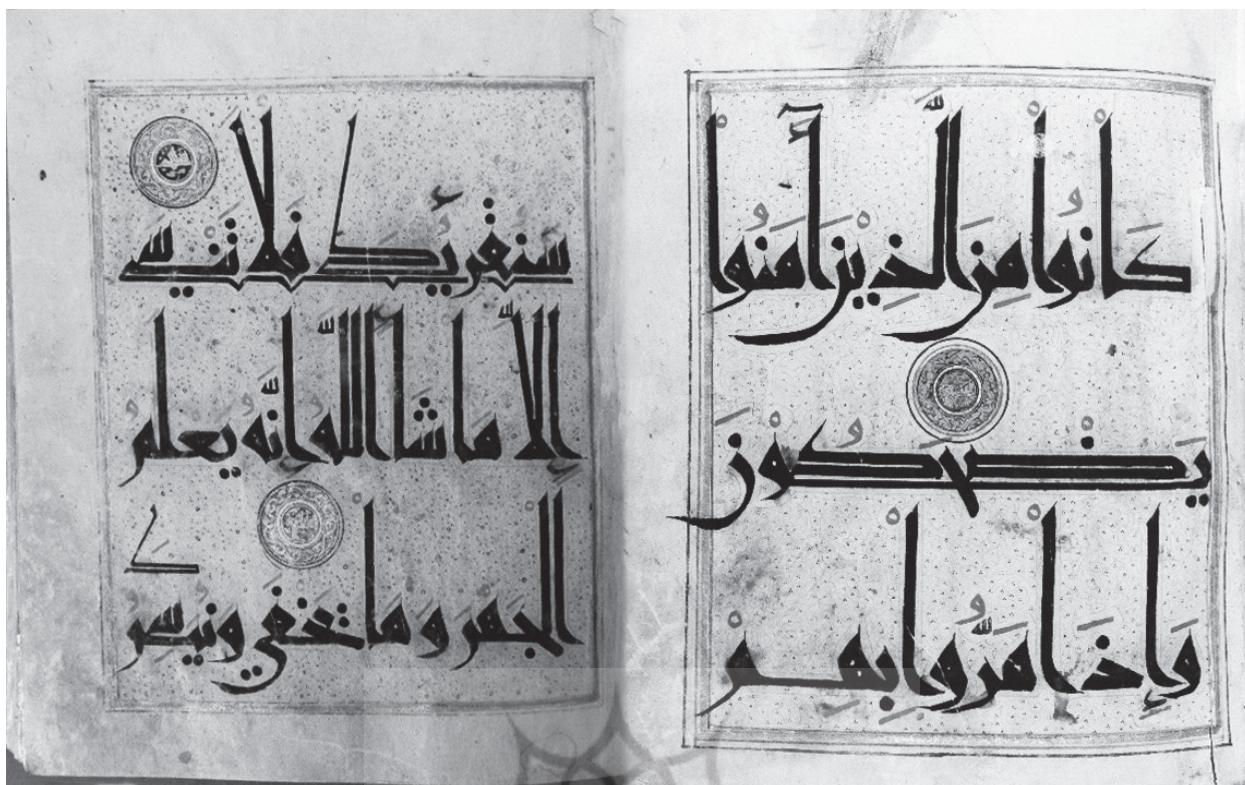 كَانُواْ مِنَ الَّذِيْنَ آمَنُواْ
يَضْحَكُوْنَ
وَإِذَا مَرُّواْ بِهِمْ
سَنُقْرِئُكَ فَلَا تَنْسَى
إِلَّا مَا شَآءَ اللّٰهُ إِنَّهُ يَعْلَمُ
الْجَهْرَ وَمَا يَخْفَي وَنُيَسِّرُكَ